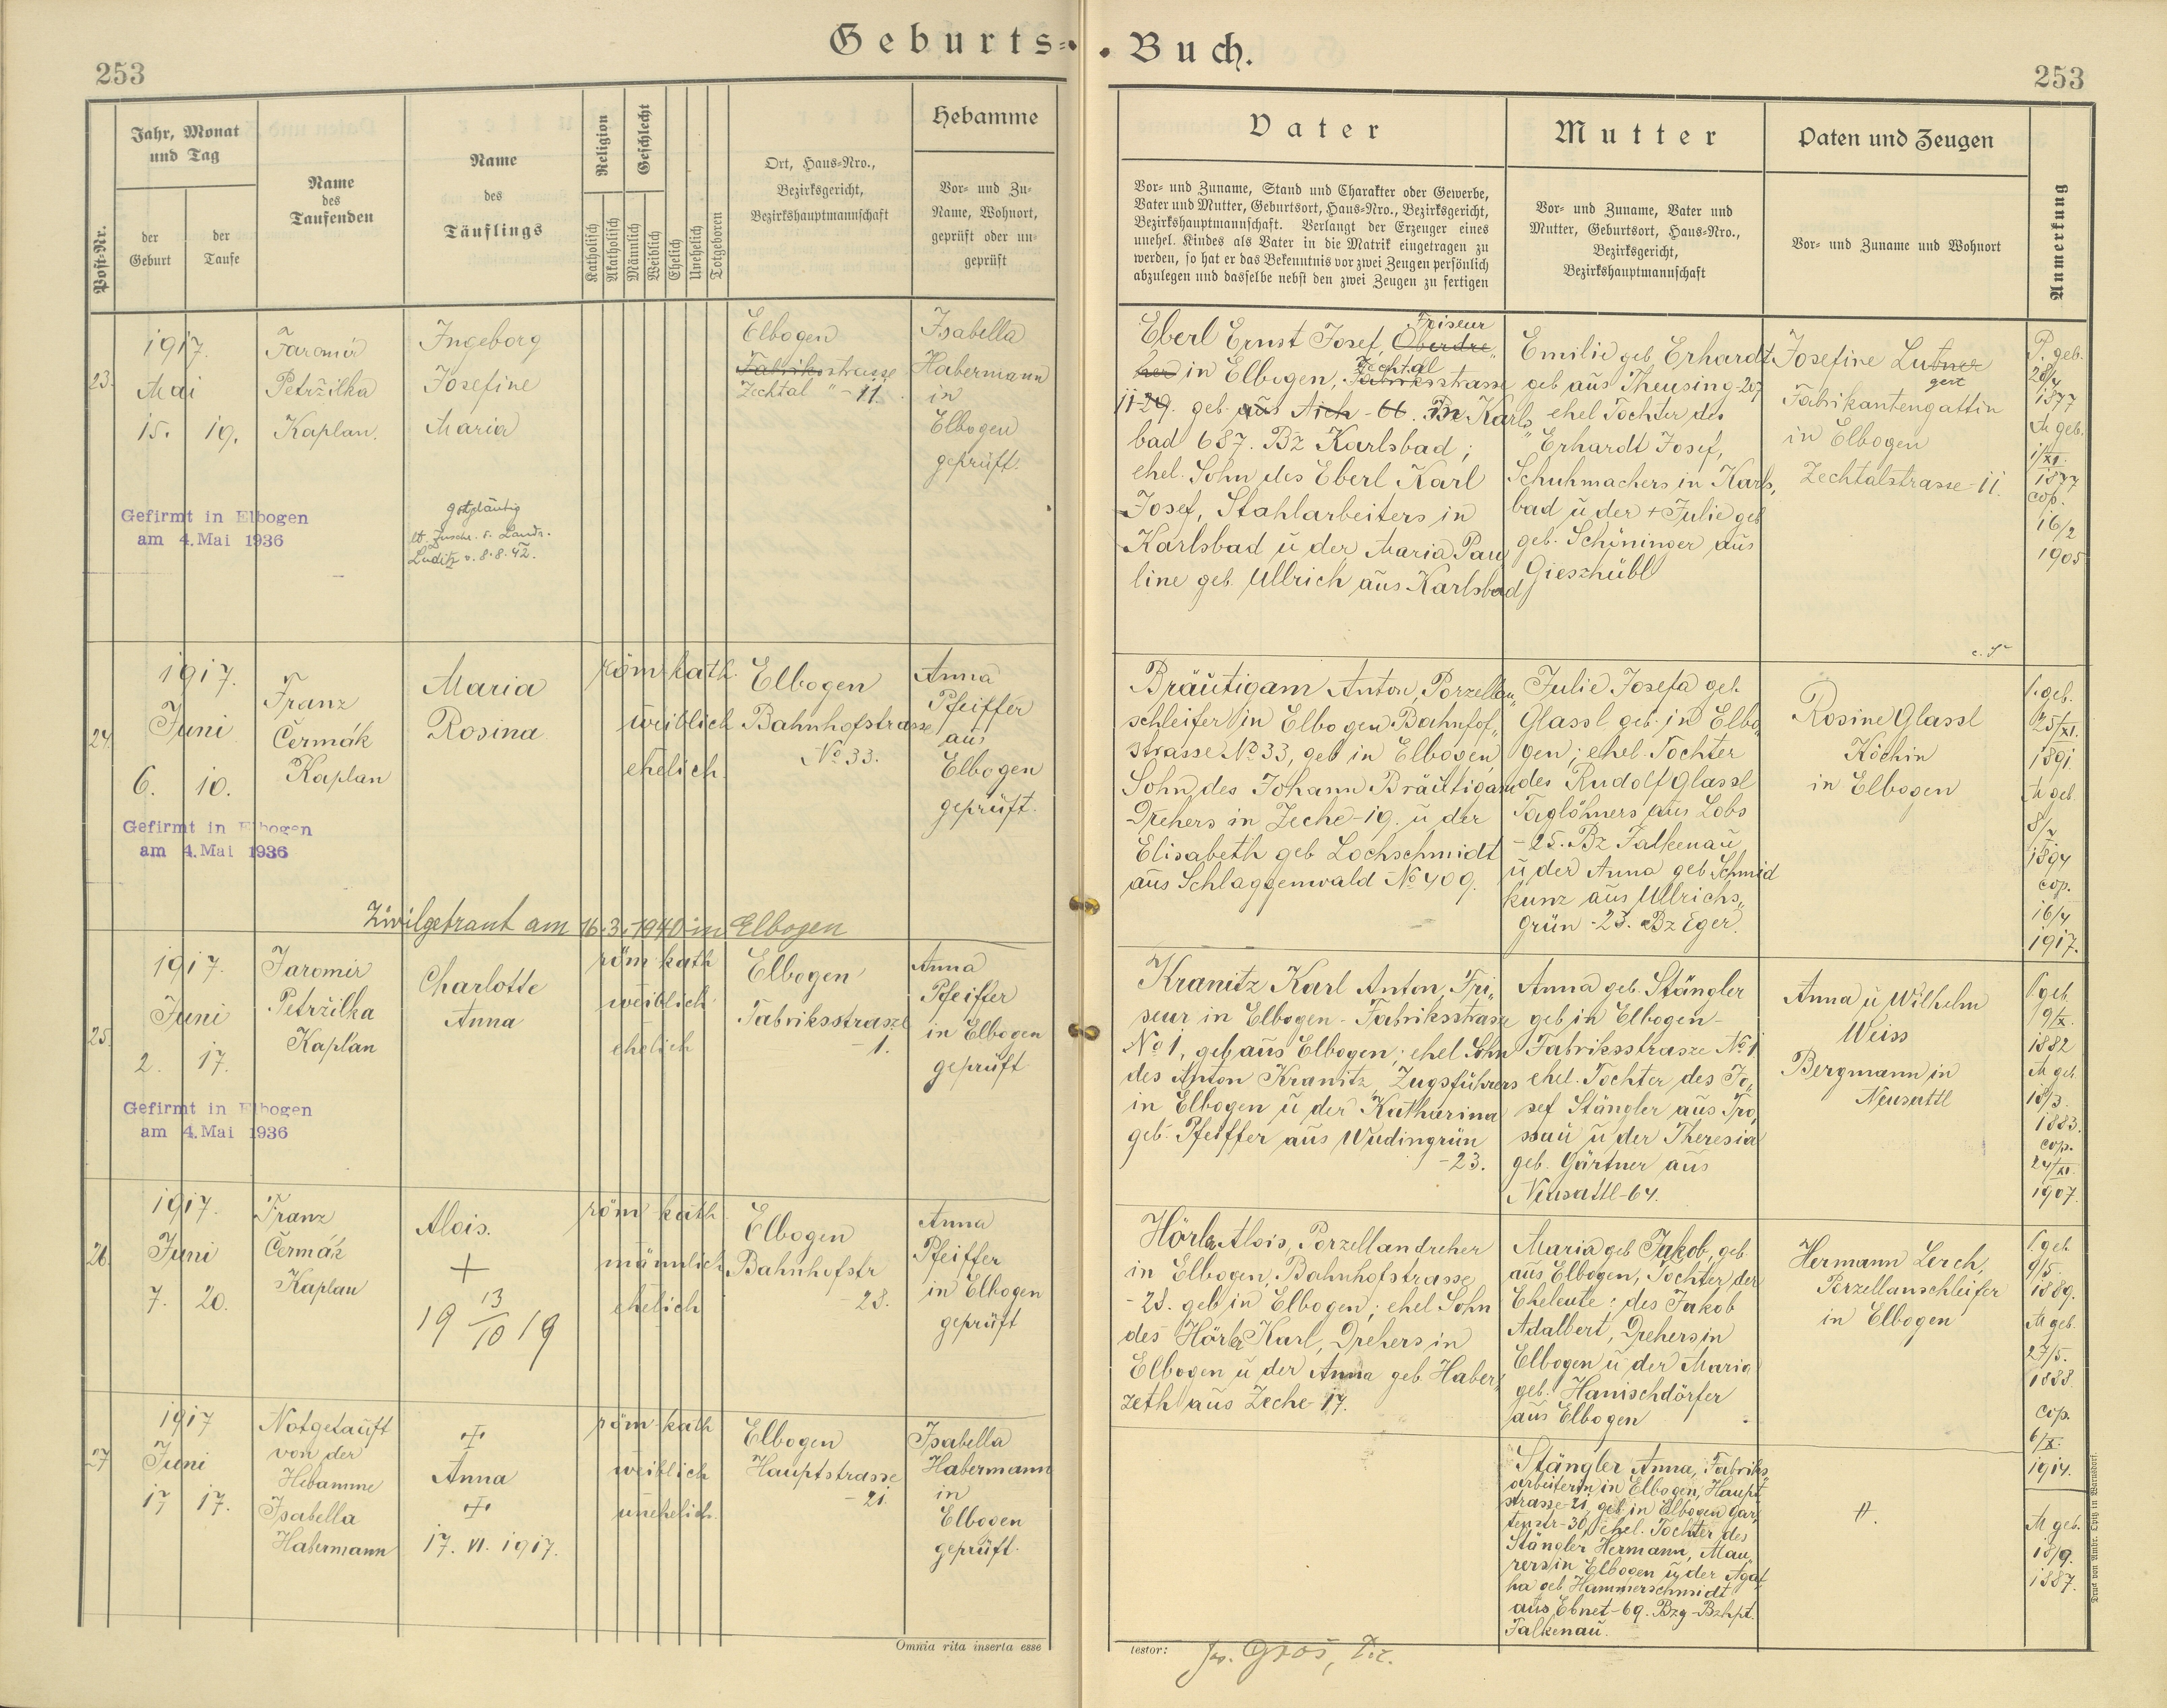 Geburts=Buch.
253
253
Post=Nr.
Jahr, Monat
und Tag
der
Geburt
der
Taufe
Name
des
Taufenden
Name
des
Täuflings
Religion
Katholisch
Akatholisch
Geschlecht
Männlich
Weiblich
Ehelich
Unehelich
Totgeboren
Ort, Haus=Nro.,
Bezirksgericht,
Bezirkshauptmannschaft
Hebamme
Vor= und Zu=
Name, Wohnort,
geprüft oder un=
geprüft
Vater
Vor= und Zuname, Stand und Charakter oder Gewerbe,
Vater und Mutter, Geburtsort, Haus=Nro., Bezirksgericht,
Bezirkshauptmannschaft. Verlangt der Erzeuger eines
unehel. Kindes als Vater in die Matrik eingetragen zu
werden, so hat er das Bekenntnis vor zwei Zeugen persönlich
abzulegen und dasselbe nebst den zwei Zeugen zu fertigen
Mutter
Vor= und Zuname, Vater und
Mutter, Geburtsort, Haus=Nro.,
Bezirksgericht,
Bezirkshauptmannschaft
Paten und Zeugen
Vor= und Zuname und Wohnort
Anmerkung
23.
1917.
Mai
15. 19.
Jaromír
Petržilka
Kaplan.
Ingeborg
Josefine
Maria
gottgläubig
lt. Zuschr. d. Landr.
Luditz v. 8.8.42.
Gefirmt in Elbogen
am 4. Mai 1936
Elbogen
Fabriksstrasse
Zechtal " - 11.
Isabella
Habermann
in
Elbogen
geprüft.
Eberl Ernst Josef, Friseur Oberdre„
her in Elbogen, Zechtal Fabriksstrasse
11-29. geb. aus Aich - 66. In Karls„
bad 687. Bz Karlsbad;
ehel. Sohn des Eberl Karl
Josef, Stahlarbeiters in
Karlsbad u der Maria Pau
line geb. Ullrich aus Karlsbad
Emilie geb. Erhardt
geb aus Theusing-207
ehel Tochter des
Erhardt Josef,
Schuhmachers in Karls„
bad u der + Julie geb
geb. Schöninger aus
Gieszhübl
Josefine Lutner
gert
Fabrikantengattin
in Elbogen
Zechtalstrasse-11.
P. geb.
28/4
1877
M geb.
1/XI.
1877
cop.
16/2
1905
24.
1917.
Juni
6. 10.
Franz
Čermák
Kaplan
Maria
Rosina
röm kath.
weiblich
ehelich.
Elbogen
Bahnhofstrasse
No 33.
Anna
Pfeiffer
aus
Elbogen
geprüft.
Gefirmt in Elbogen
am 4. Mai 1936
Zivilgetraut am 16.3.1940 in Elbogen
Bräutigam Anton, Porzellan„
schleifer in Elbogen Bahnhof„
strasse No 33, geb in Elbogen,
Sohn des Johann Bräutigam
Drehers in Zeche-19. u der
Elisabeth geb Lochschmidt
aus Schlaggenwald No 409.
Julie Josefa geb.
Glassl geb. in Elbo„
gen; ehel. Tochter
des Rudolf Glassl
Taglöhners aus Lobs
-25. Bz Falkenau
u der Anna geb Schmid
kunz aus Ullrichs„
grün -23. Bz Eger.
Rosine Glassl
Köchin
in Elbogen
geb.
25/XI.
1891.
M geb
1894
cop.
16/4
1917.
25.
1917.
Juni
2. 17.
Jaromír
Petržilka
Kaplan
Charlotte
Anna
röm kath
weiblich
ehelich
Elbogen
Fabriksstrasze
-1.
Anna
Pfeiffer
in Elbogen
geprüft
Gefirmt in Elbogen
am 4. Mai 1936
Kranitz Karl Anton, Fri„
seur in Elbogen - Fabriksstrasze
No 1, geb aus Elbogen; ehel Sohn
des Anton Kranitz, Zugsführers
in Elbogen u der Katharina
geb. Pfeiffer aus Wudingrün
-23.
Anna geb. Stängler
geb in Elbogen-
Fabriksstrasze No 1
ehel. Tochter des Jo„
sef Stängler aus Tro„
ssau u der Theresia
geb. Gärtner aus
Neusattl-64.
Anna u Wilhelm
Weiss
Bergmann in
Neusattl
geb.
9/X.
1882
M geb.
18/3.
1883.
cop.
24/XI.
1907.
26.
1917.
Juni
7. 20.
Franz
Čermák
Kaplan
Alois.
+
19 13/10 19
röm kath
männlich
ehelich
Elbogen
Bahnhofstr
-28.
Anna
Pfeiffer
in Elbogen
geprüft
Hörl Alois, Porzellandreher
in Elbogen, Bahnhofstrasse
-28. geb in Elbogen; ehel Sohn
des Karl, Drehers in
Elbogen u der Anna geb. Haber„
zeth aus Zeche-17.
Maria geb Jakob, geb
aus Elbogen, Tochter der
Eheleute: des Jakob
Adalbert, Drehers in
Elbogen u der Maria
geb. Hanischdörfer
aus Elbogen
Hermann Lerch,
Porzellanschleifer
in Elbogen
geb.
9/5.
1889.
M geb.
27/5.
1888.
cop.
6/X.
1914.
27
1917
Juni
17 17.
Notgetauft
von der
Hebamme
Isabella
Habermann
+
Anna
+
17. VI. 1917.
röm kath
weiblich
unehelich.
Elbogen
Hauptstrasse
-21.
Isabella
Habermann
in
Elbogen
geprüft.
Stängler Anna, Fabriks„
arbeiterin in Elbogen, Haupt
strasse-21, geb. in Elbogen Gar„
tenstr-30, ehel. Tochter des
Stängler Hermann, Mau„
rers in Elbogen u der Aga„
tha geb Hammerschmidt
aus Ebnet-69. Bzg-Bzhpt.
Falkenau.
M geb.
18/9.
1887.
Omnia rita inserta esse
testor:
Jos. Gros,
Druck von Ambr. Opitz in Warnsdorf.